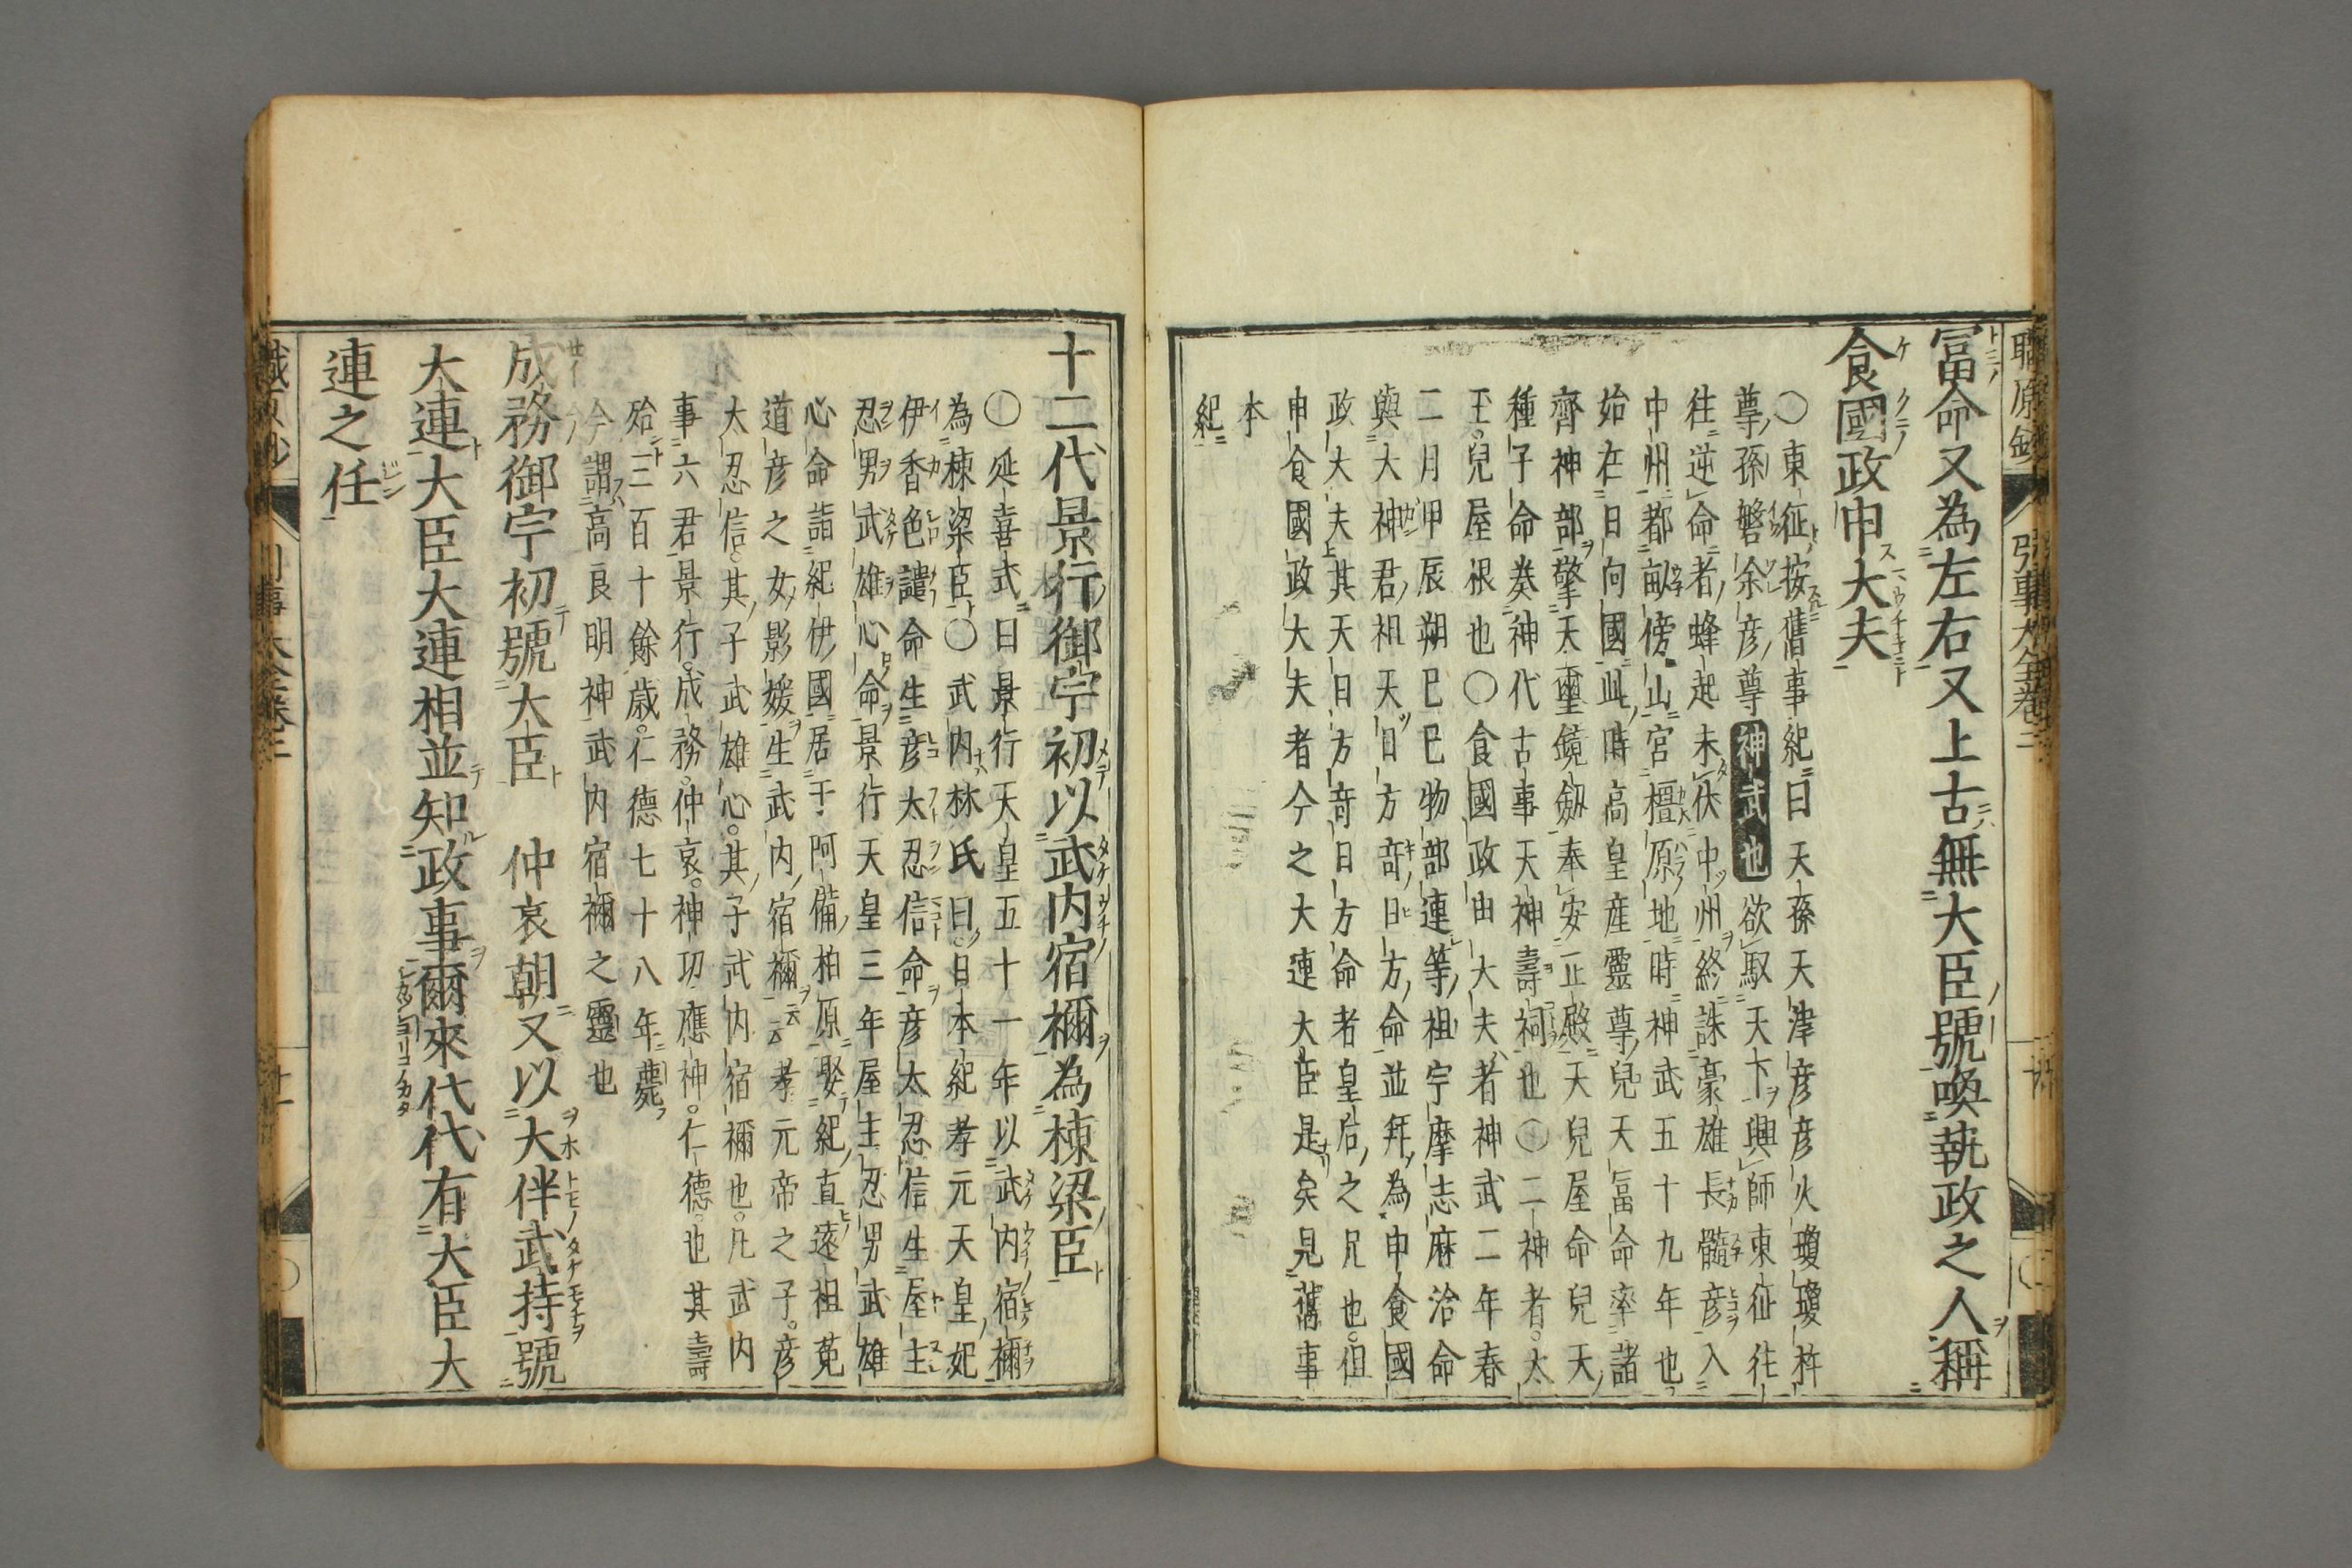 冨命又為左右又上古無大臣號喚執政之人稱
食國政申大夫
〇東征按舊事紀曰天孫天津彦彦火瓊瓊杵
尊孫磐余彦尊神武也欲馭天下興師東征往
往逆命者蜂起未伏中州終誅豪雄長髓彦入
中州都畝傍山宮橿原地時神武五十九年也
始在日向國此時高皇産靈尊兒天冨命率諸
齊神部擎天璽鏡劔奉安正殿天兒屋命兒天
種子命奏神代古事天神壽祠也〇二神者太
玉兒屋根也〇食國政申大夫者神武二年春
二月甲辰朔巳巳物部連等祖宇摩志麻治命
與大神君祖天日方竒日方命並拜為申食國
政大夫其天日方竒日方命者皇后之兄也但
申食國政大夫者今之大連大臣是矣見舊事
本
紀
十二代景行御宇初以武内宿禰為棟梁臣
〇延喜式曰景行天皇五十一年以武内宿禰
為棟梁臣〇武内林氏曰日本紀孝元天皇妃
伊香色謎命生彦太忍信命彦太忍信生屋主
忍男武雄心命景行天皇三年屋主忍男武雄
心命詣紀伊國居于阿備柏原娶紀直遠祖菟
道彦之女影媛生武内宿禰云云孝元帝之子彦
太忍信其子武雄心其子武内宿禰也凡武内
事六君景行成務仲哀神功應神仁德也其壽
殆三百十餘歳仁德七十八年薨
今謂高良明神武内宿禰之靈也
成務御宇初號大臣 仲哀朝又以大伴武持號
大連大臣大連相並知政事爾來代代有大臣大
連之任